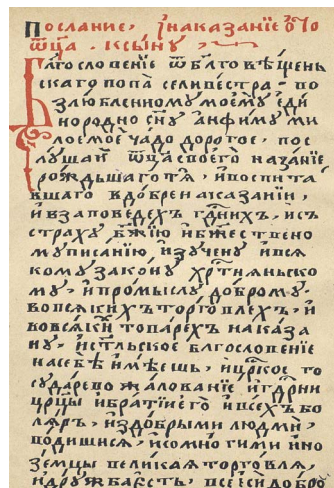 Послание, и наказание ѿ о
ѿца . к сыну ,
Благословение ѿ блговѣщень
скаго попа селивестра . во
злюбленному моему еди
нородно сну анфиму ми
лое мое чадо дорогое . пос
лушаи ѿца своего наказание
рождьшаго тя , и воспита
вшаго в добре наказании ,
и в заповедехъ гднихъ , и съ
страху бжию и бжествено
му писанию изучену и вся
кому закону хртияньско
му , и промыслу доброму .
во всякихъ торговлехъ , и
во всяки товарехъ наказа
ну , и стльское блгословение
на себѣ имѣешь , и црское го
сударево жалование и гдрни
црцы и братии его и всехъ бо
ляръ , и з добрыми людми ,
водишися , и со многими ино
земцы великая торговля ,
и дружба есть , все еси добро